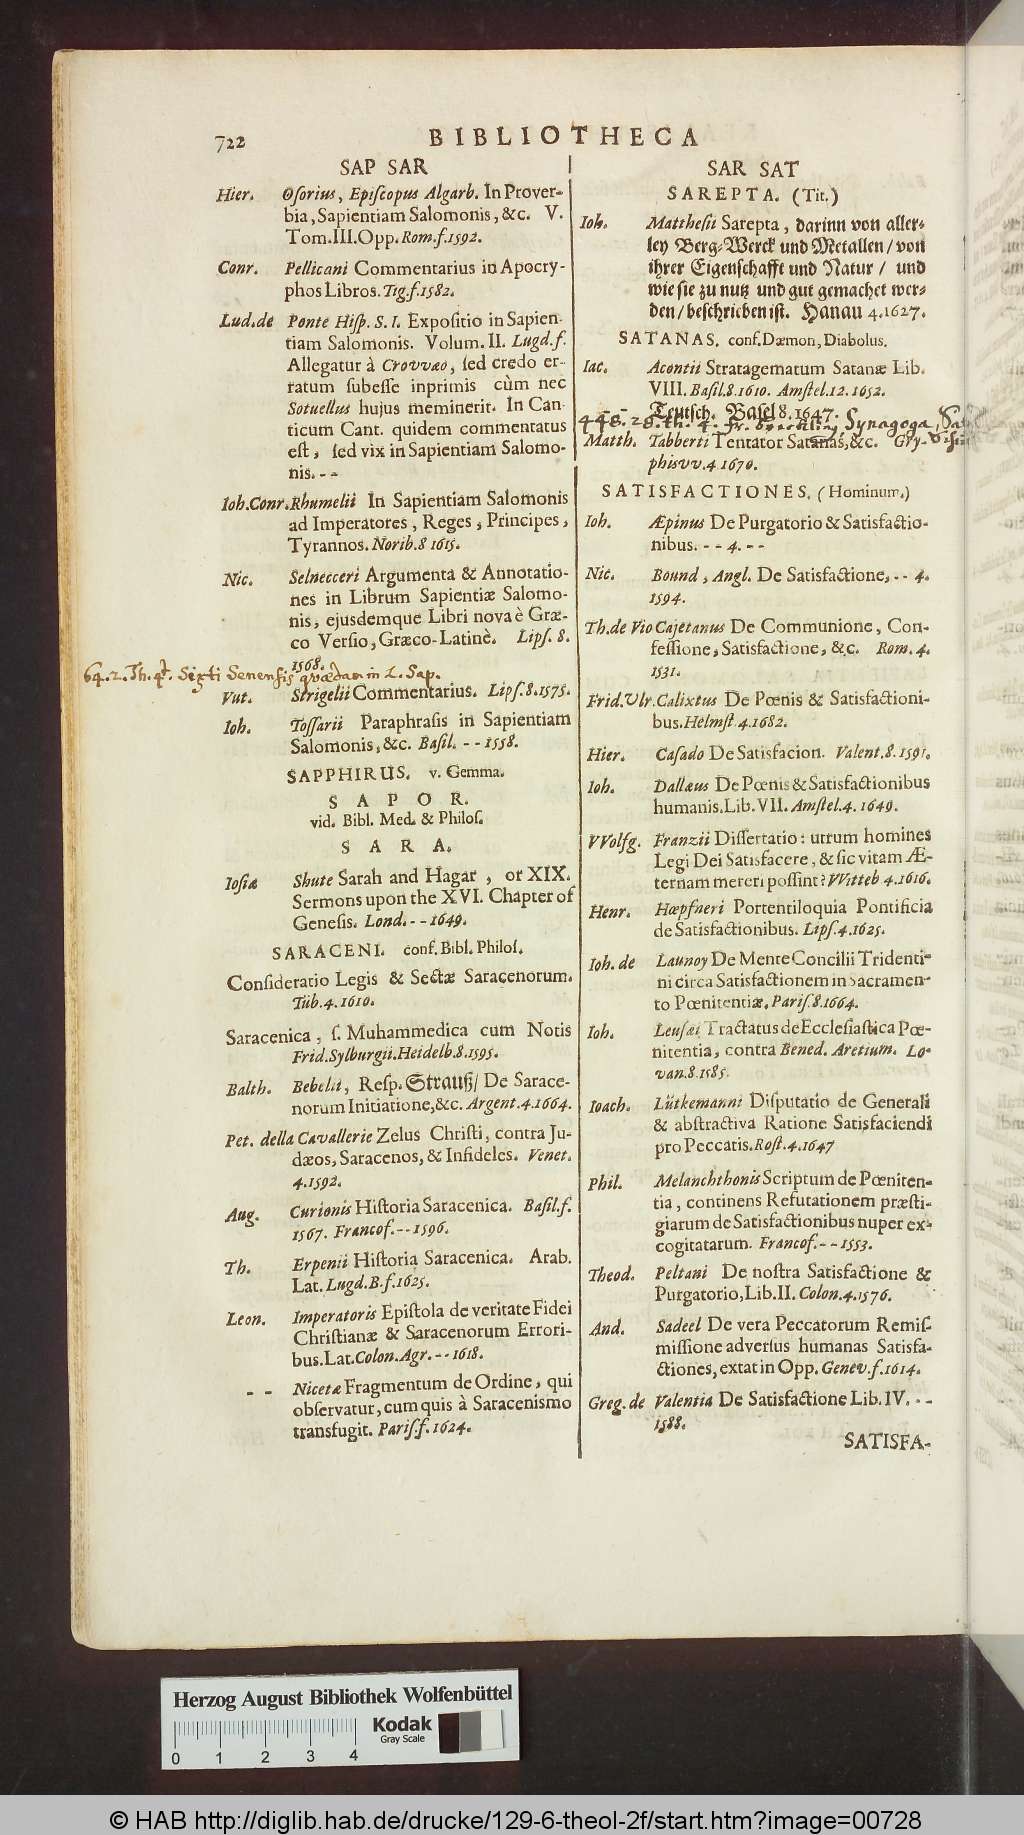 722
BIBLIOTHECA
SAP SAR
Hier. Osorius, Episcopus Algarb. In Prover-
bia, Sapientiam Salomonis, &c. V.
Tom.III.Opp. Rom.f.1592.
Conr. Pellicani Commentarius in Apocry-
phos Libros. Tig.f.1582.
Lud.de Ponte Hisp. S. I. Expositio in Sapien-
tiam Salomonis. Volum. II. Lugd.f.
Allegatur à Crovvæo, sed credo er-
ratum subesse inprimis cùm nec
Sotuellus hujus meminerit. In Can-
ticum Cant. quidem commentatus
est, sed vix in Sapientiam Salomo-
nis. - -
Ioh.Conr. Rhumelii In Sapientiam Salomonis
ad Imperatores, Reges, Principes,
Tyrannos. Norib.8 1615.
Nic. Selnecceri Argumenta & Annotatio-
nes in Librum Sapientiæ Salomo-
nis, ejusdemque Libri nova è Græ-
co Versio, Græco-Latinè. Lips. 8.
1568.
64.2.Th.4t. Sixti Senensis quædam in L. Sap.
Vut. Strigelii Commentarius. Lips.8.1575.
Ioh. Tossarii Paraphrasis in Sapientiam
Salomonis, &c. Basil. - - 1558.
SAPPHIRUS. v. Gemma.
SAPOR.
vid. Bibl. Med. & Philos.
SARA.
Iosiæ Shute Sarah and Hagar, or XIX.
Sermons upon the XVI. Chapter of
Genesis. Lond. - - 1649.
SARACENI. conf. Bibl. Philos.
Consideratio Legis & Sectæ Saracenorum.
Tüb.4.1610.
Saracenica, s. Muhammedica cum Notis
Frid.Sylburgii.Heidelb.8.1595.
Balth. Bebelii, Resp. Strauß/ De Sarace-
norum Initiatione, &c. Argent.4.1664.
Pet. della Cavallerie Zelus Christi, contra Ju-
dæos, Saracenos, & Infideles. Venet.
4.1592.
Aug. Curionis Historia Saracenica. Basil.f.
1567. Francof. - - 1596.
Th. Erpenii Historia Saracenica. Arab.
Lat. Lugd.B.f.1625.
Leon. Imperatoris Epistola de veritate Fidei
Christianæ & Saracenorum Errori-
bus. Lat. Colon.Agr. - - 1618.
- - Nicetæ Fragmentum de Ordine, qui
observatur, cum quis à Saracenismo
transfugit. Paris.f.1624.
SAR SAT
SAREPTA. (Tit.)
Ioh. Matthesii Sarepta, darinn von aller-
ley Berg-Werck und Metallen/ von
ihrer Eigenschafft und Natur/ und
wie sie zu nutz und gut gemachet wer-
den/ beschrieben ist. Hanau 4.1627.
SATANAS. conf. Dæmon, Diabolus.
Iac. Acontii Stratagematum Satanæ Lib.
VIII. Basil.8.1610. Amstel.12.1652.
Teutsch. Basel 8.1647.
448.28.th.4. Fr. Synagoga
Matth. Tabberti Tentator Satanas, &c. Gry-
phisvv.4 1670.
SATISFACTIONES. (Hominum.)
Ioh. Æpinus De Purgatorio & Satisfactio-
nibus. - - 4. - -
Nic. Bound, Angl. De Satisfactione, - - 4.
1594.
Th.de Vio Cajetanus De Communione, Con-
fessione, Satisfactione, &c. Rom. 4.
1531.
Frid.Ulr. Calixtus De Pœnis & Satisfactioni-
bus. Helmst.4.1682.
Hier. Casado De Satisfacion. Valent.8.1591.
Ioh. Dallæus De Pœnis & Satisfactionibus
humanis. Lib. VII. Amstel.4.1649.
VVolfg. Franzii Dissertatio: utrum homines
Legi Dei Satisfacere, & sic vitam Æ-
ternam mereri possint? VVitteb 4.1616.
Henr. Hœpfneri Portentiloquia Pontificia
de Satisfactionibus. Lips.4.1625.
Ioh. de Launoy De Mente Concilii Tridenti-
ni circa Satisfactionem in Sacramen-
to Pœnitentiæ. Paris.8.1664.
Ioh. Leusæi Tractatus de Ecclesiastica Pœ-
nitentia, contra Bened. Aretium. Lo-
van.8.1585.
Ioach. Lütkemanni Disputatio de Generali
& abstractiva Ratione Satisfaciendi
pro Peccatis. Rost.4.1647
Phil. Melanchthonis Scriptum de Pœniten-
tia, continens Refutationem præsti-
giarum de Satisfactionibus nuper ex-
cogitatarum. Francof. - - 1553.
Theod. Peltani De nostra Satisfactione &
Purgatorio, Lib. II. Colon.4.1576.
And. Sadeel De vera Peccatorum Remis-
missione adversus humanas Satisfa-
ctiones, extat in Opp. Genev.f.1614.
Greg. de Valentia De Satisfactione Lib. IV. - -
1588.
SATISFA-
Herzog August Bibliothek Wolfenbüttel
0 1 2 3 4
Kodak
Gray Scale
© HAB http://diglib.hab.de/drucke/129-6-theol-2f/start.htm?image=00728